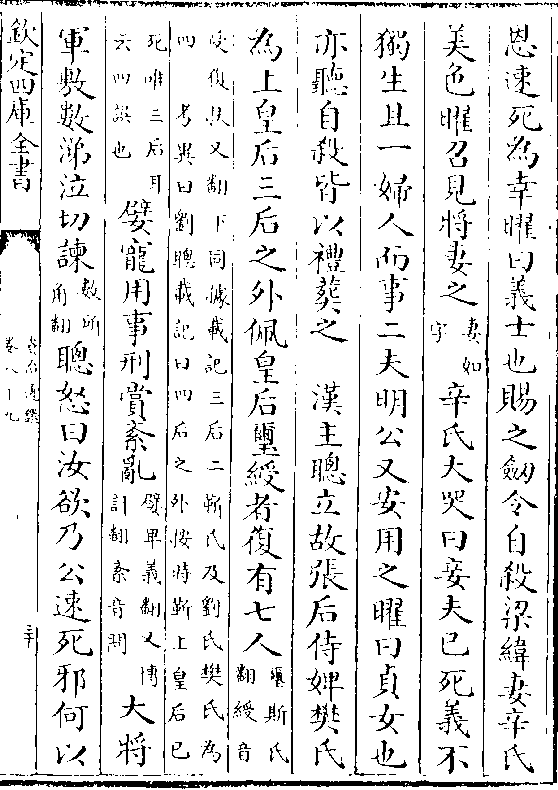 恩速死為幸曜曰義士也賜之劒令自殺梁緯妻辛氏
美色曜召見將妻之妻如字辛氏大哭曰妾夫已死義不
獨生且一婦人而事二夫明公又安用之曜曰貞女也
亦聽自殺皆以禮葬之　漢主聰立故張后侍婢樊氏
為上皇后三后之外佩皇后璽綬者復有七人璽斯氏翻綬音
受復扶又翻下同據載記三后二靳氏及劉氏樊氏為
四　考異曰劉聰載記曰四后之外按時靳上皇后已
死唯三后耳云四誤也嬖寵用事刑賞紊亂嬖卑義翻又博計翻紊音問大將
軍敷數涕泣切諫數所角翻聰怒曰汝欲乃公速死邪何以
欽定四庫全書
資治通鑑
卷八十九
三十